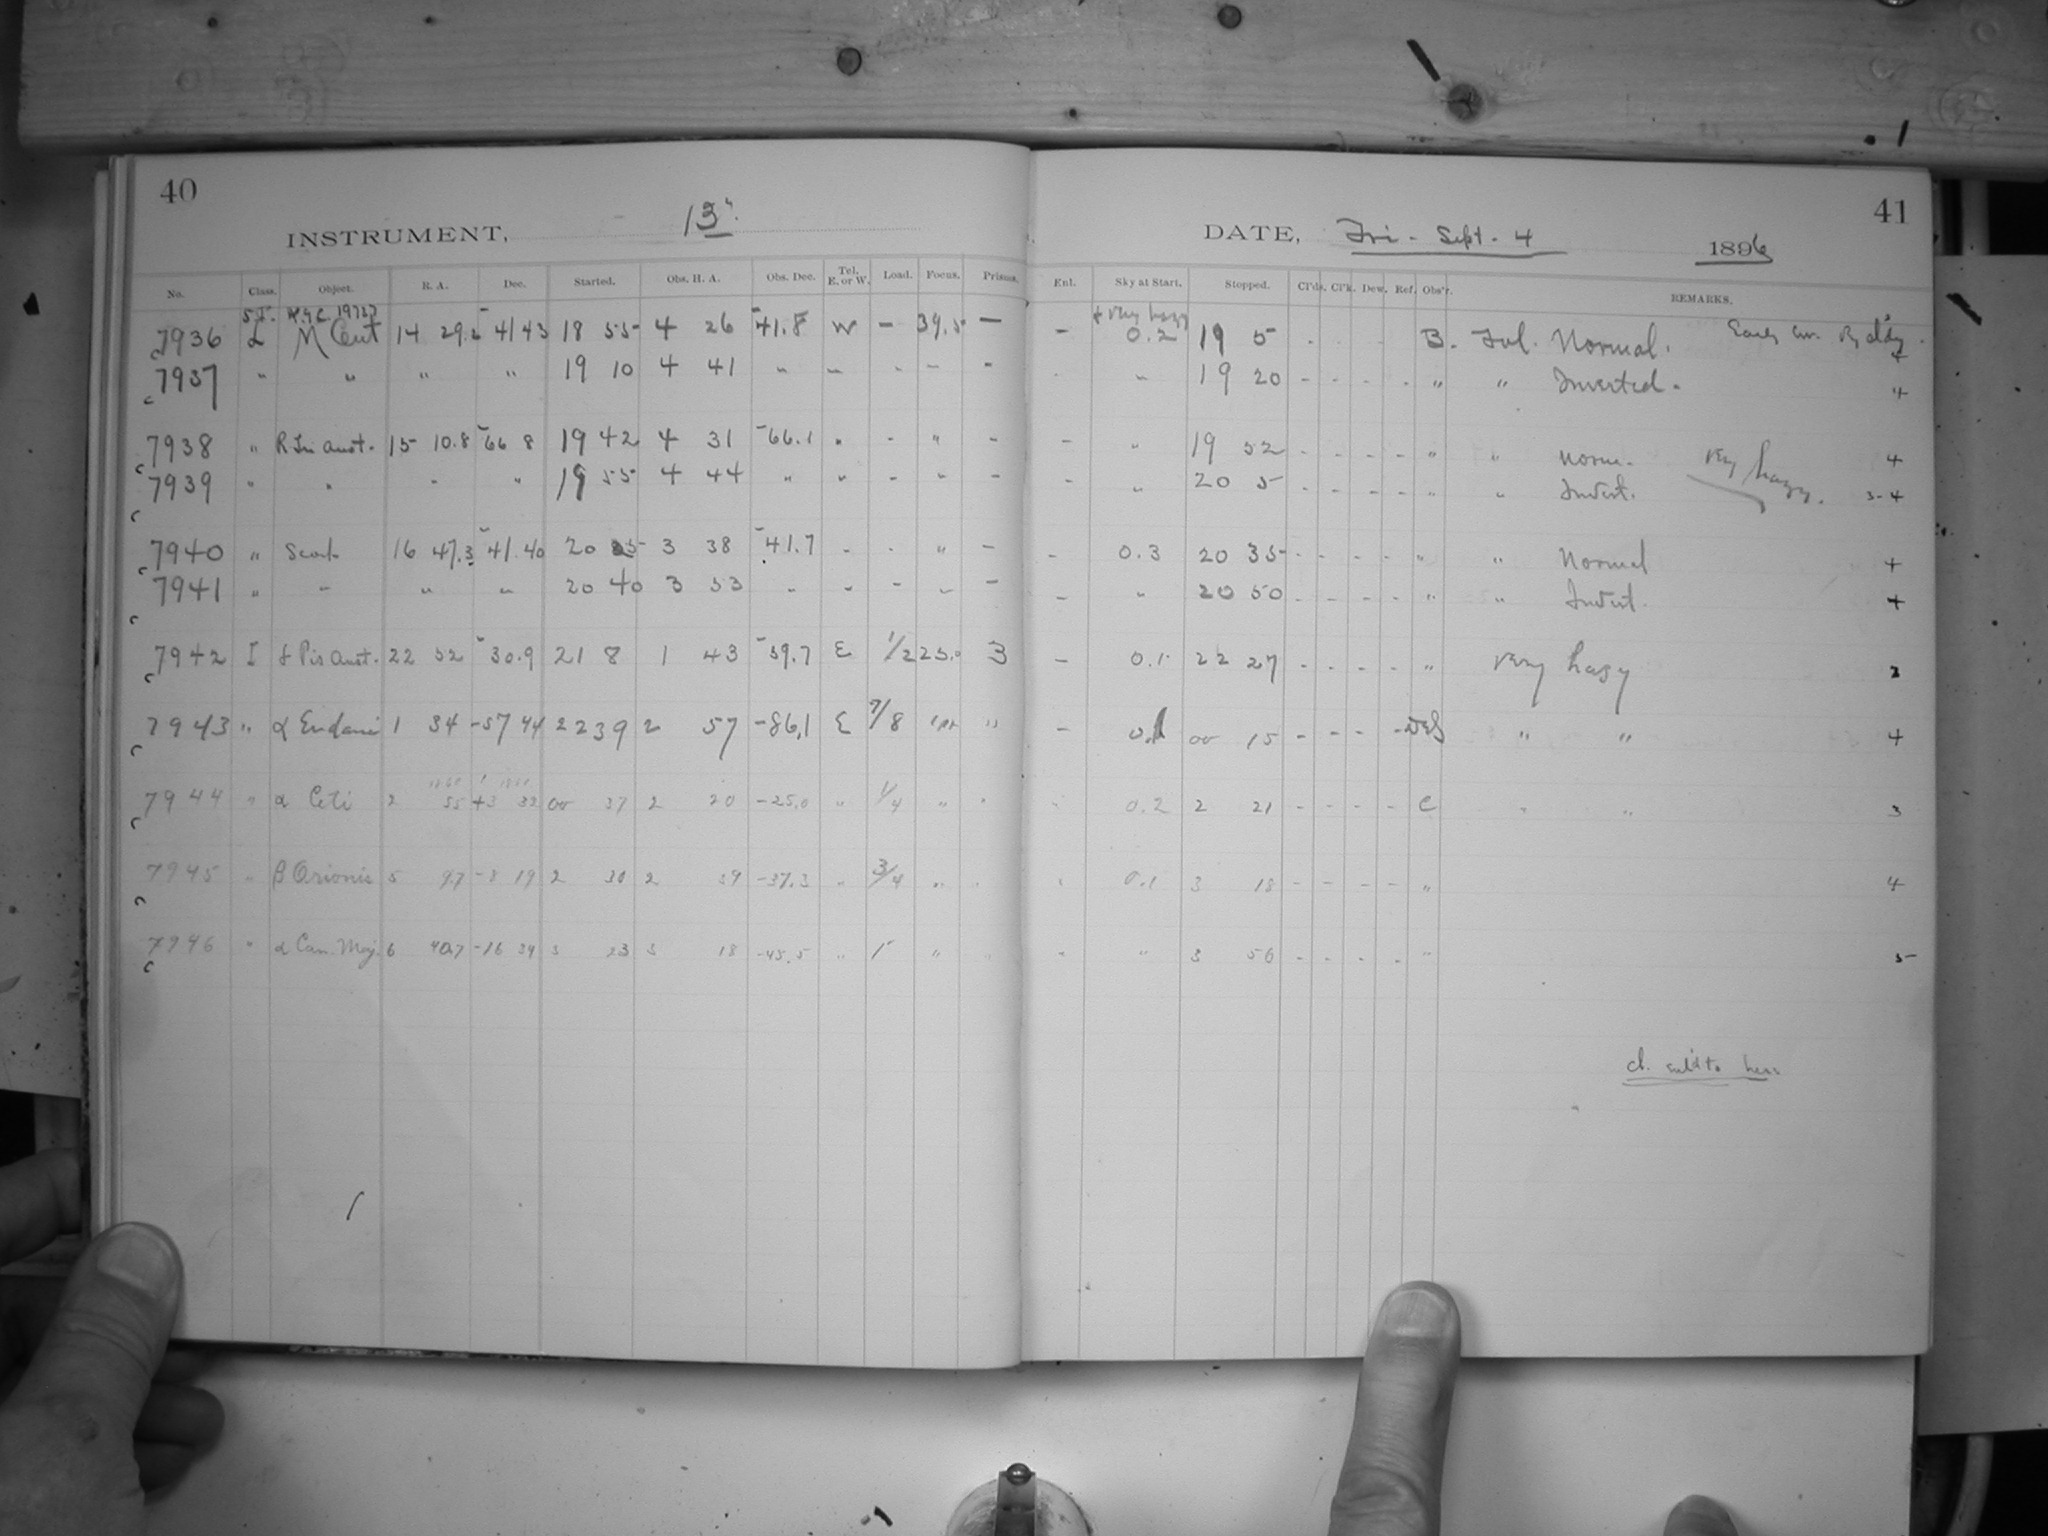 40
INSTRUMENT, 13".
No. Class. Object. R. A. Dec. Started. Obs. H. A. Obs. Dec. Tel. E. or W. Load. Focus. Prisms.
7936 L M Cent 14 29.5 -41 43 18 55 4 26 -41.8 W - 39.5 -
7937 " " " " 19 10 4 41 " " - - -
7938 " R Tri aust. 15 10.8 -66 8 19 42 4 31 -66.1 " - " -
7939 " " " " 19 55 4 44 " " - " -
7940 " 16 47.3 -41.40 20 25 3 38 -41.7 - - " -
7941 " " " " 20 40 3 53 " " - " -
7942 I Pis Aust. 22 52 -30.9 21 8 1 43 -39.7 E 1/2 25.0 3
7943 " α Eridani 1 34 -57 44 22 39 2 57 -86.1 E 7/8 "
7944 " α Ceti 2 55 +3 32 00 37 2 20 -25.0 " 1/4 " "
7945 " β Orionis 5 9.7 -8 19 2 30 2 39 -37.3 " 3/4 " "
7946 " α Can. Maj. 6 40.7 -16 34 3 23 3 18 -45.5 " 1 " "
41
DATE, Fri - Sept - 4 1896
Ent. Sky at Start. Stopped. Cl'ds. Cl'k. Dew. Ref. Obs'r. REMARKS.
very hazy
- 0.2 19 5 - - - - B. Normal.
- " 19 20 - - - - " " Inverted. 4
- " 19 52 - - - - " " Norm. very hazy. 4
- " 20 5 - - - - " " Invert. 3-4
- 0.3 20 35 - - - - " " Normal 4
- " 20 50 - - - - " " Invert. 4
- 0.1 22 27 - - - - " very hazy 2
- 0.1 00 15 - - - - " " 4
0.2 2 21 - - - - C " " 3
0.1 3 18 - - - - " 4
" " 3 56 - - - - " 5